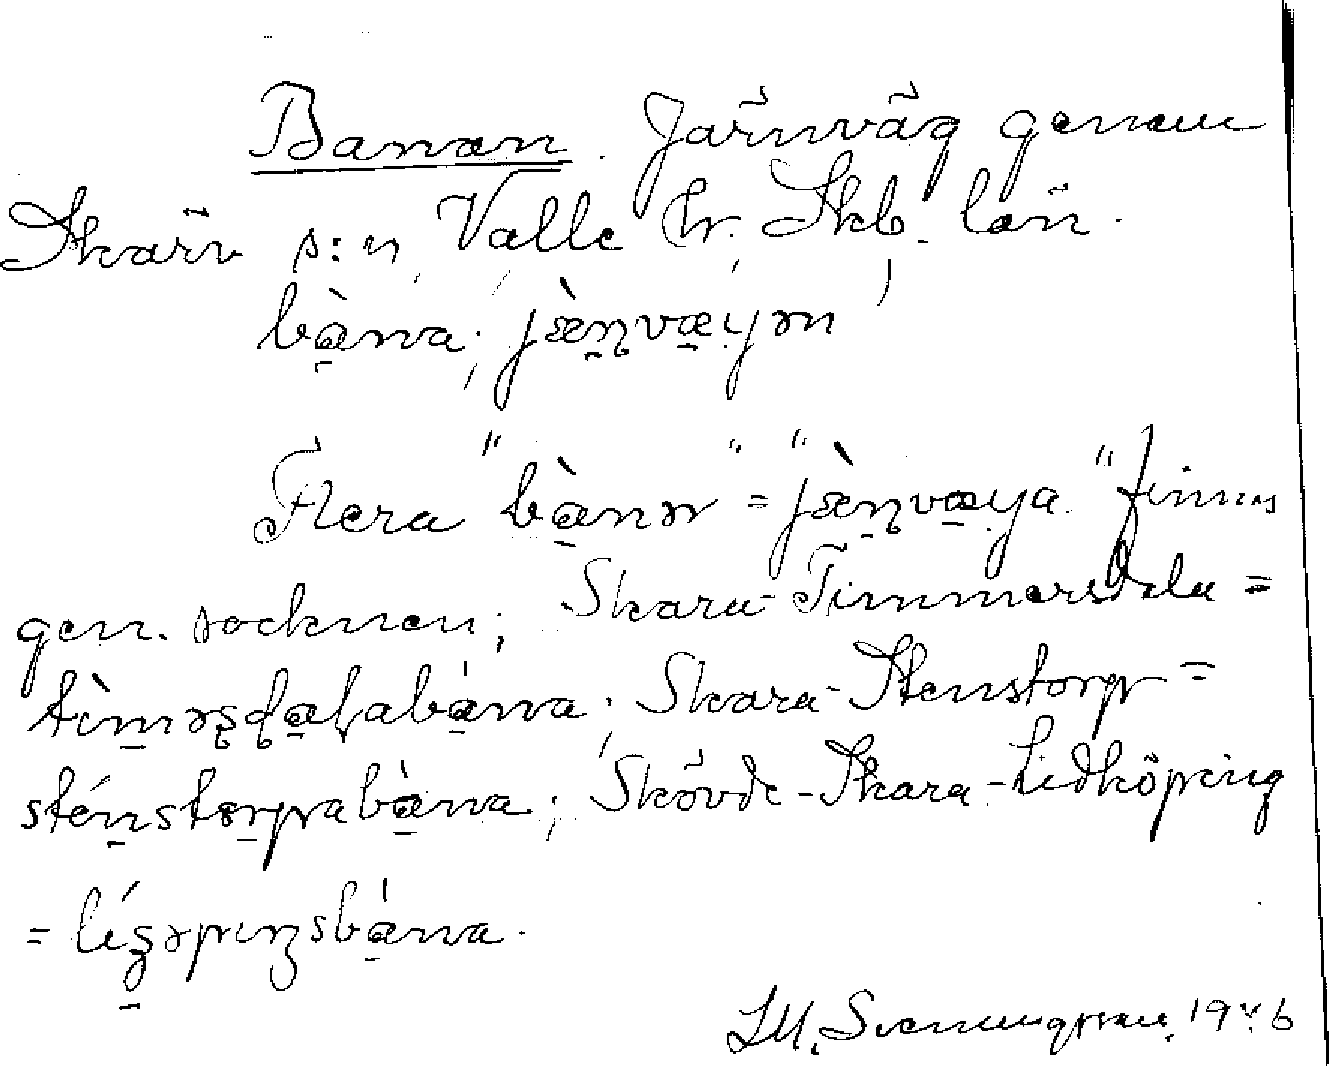 Banan. Järnväg genom
Skärv s:n, Valle hr. Skb. län.
bàna; jæ̀ɳvæɣən
Flera "bànər" = "jæ̀ɳvæɣa" finns
gen. socknen; Skara-Timmersdala =
tìməʂɖaɽabána; Skara-Stenstorp =
sténstɔrpabàna; Skövde-Skara-Lidköping
= lízəpiŋsbána.